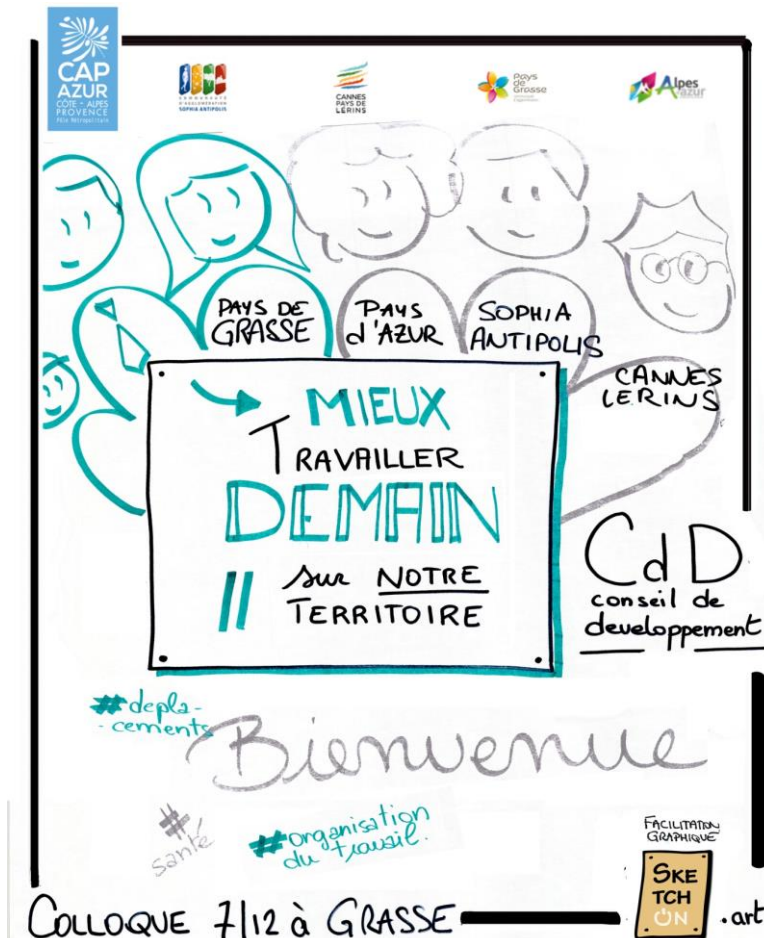 CAP
AZUR
CÔTE - ALPES
PROVENCE
Pôle Métropolitain
COMMUNAUTÉ
D'AGGLOMÉRATION
SOPHIA ANTIPOLIS
CANNES
PAYS DE
LÉRINS
Pays
de
Grasse
Alpes
d'azur
PAYS DE
GRASSE
PAYS
d'AZUR
SOPHIA
ANTIPOLIS
CANNES
LERINS
MIEUX
TRAVAILLER
DEMAIN
sur NOTRE
TERRITOIRE
CdD
conseil de
developpement
#depla-
-cements
Bienvenue
#
santé
#organisation
du travail.
FACILITATION
GRAPHIQUE
SKE
TCH
ON
.art
COLLOQUE 7/12 à GRASSE